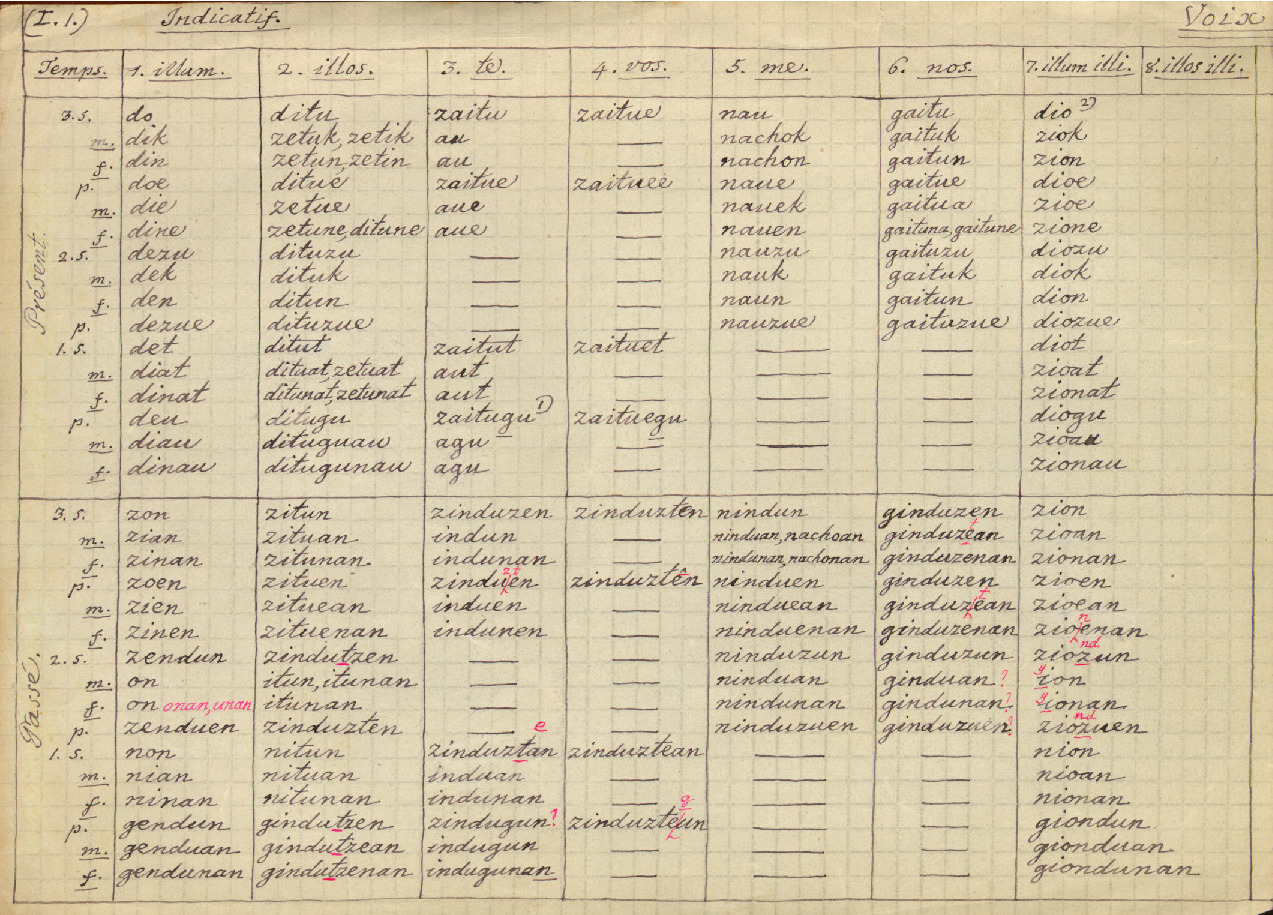 (I. 1.) Indicatif. Voix
Temps. 1. illum. 2. illos. 3. te. 4. vos. 5. me. 6. nos. 7. illum illi. 8. illos illi.
Présent.
3. s. do ditu zaitu zaitue nau gaitu dio 2)
m. dik zetuk, zetik au — nachok gaituk ziok
f. din zetun, zetin au — nachon gaitun zion
p. doe ditue zaitue zaituee naue gaitue dioe
m. die zetue aue — nauek gaitua zioe
f. dine zetune, ditune aue — nauen gaituna, gaitune zione
2. s. dezu dituzu — — nauzu gaituzu diozu
m. dek dituk — — nauk gaituk diok
f. den ditun — — naun gaitun dion
p. dezue dituzue — — nauzue gaituzue diozue
1. s. det ditut zaitut zaituet — — diot
m. diat dituat, zetuat aut — — — zioat
f. dinat ditunat, zetunat aut — — — zionat
p. deu ditugu zaitugu 1) zaituegu — — diogu
m. diau dituguau agu — — — zioau
f. dinau ditugunau agu — — — zionau
Passé.
3. s. zon zitun zinduzen zinduzten nindun ginduzen zion
m. zian zituan indun — ninduan, nachoan ginduzean zioan
f. zinan zitunan indunan — nindunan, nachonan ginduzenan zionan
p. zoen zituen zinduen zinduzten ninduen ginduzen zioen
m. zien zituean induen — ninduean ginduzean zioean
f. zinen zituenan indunen — ninduenan ginduzenan zioenan
2. s. zendun zindutzen — — ninduzun ginduzun ziozun
m. on itun, itunan — — ninduan ginduan ? ion
f. on onan, unan itunan — — nindunan gindunan ? ionan
p. zenduen zinduzten — — ninduzuen ginduzuen ? ziozuen
1. s. non nitun zinduztan zinduztean — — nion
m. nian nituan induan — — — nioan
f. ninan nitunan indunan — — — nionan
p. gendun gindutzen zindugun ? zinduzteun — — giondun
m. genduan gindutzean indugun — — — gionduan
f. gendunan gindutzenan indugunan — — — giondunan